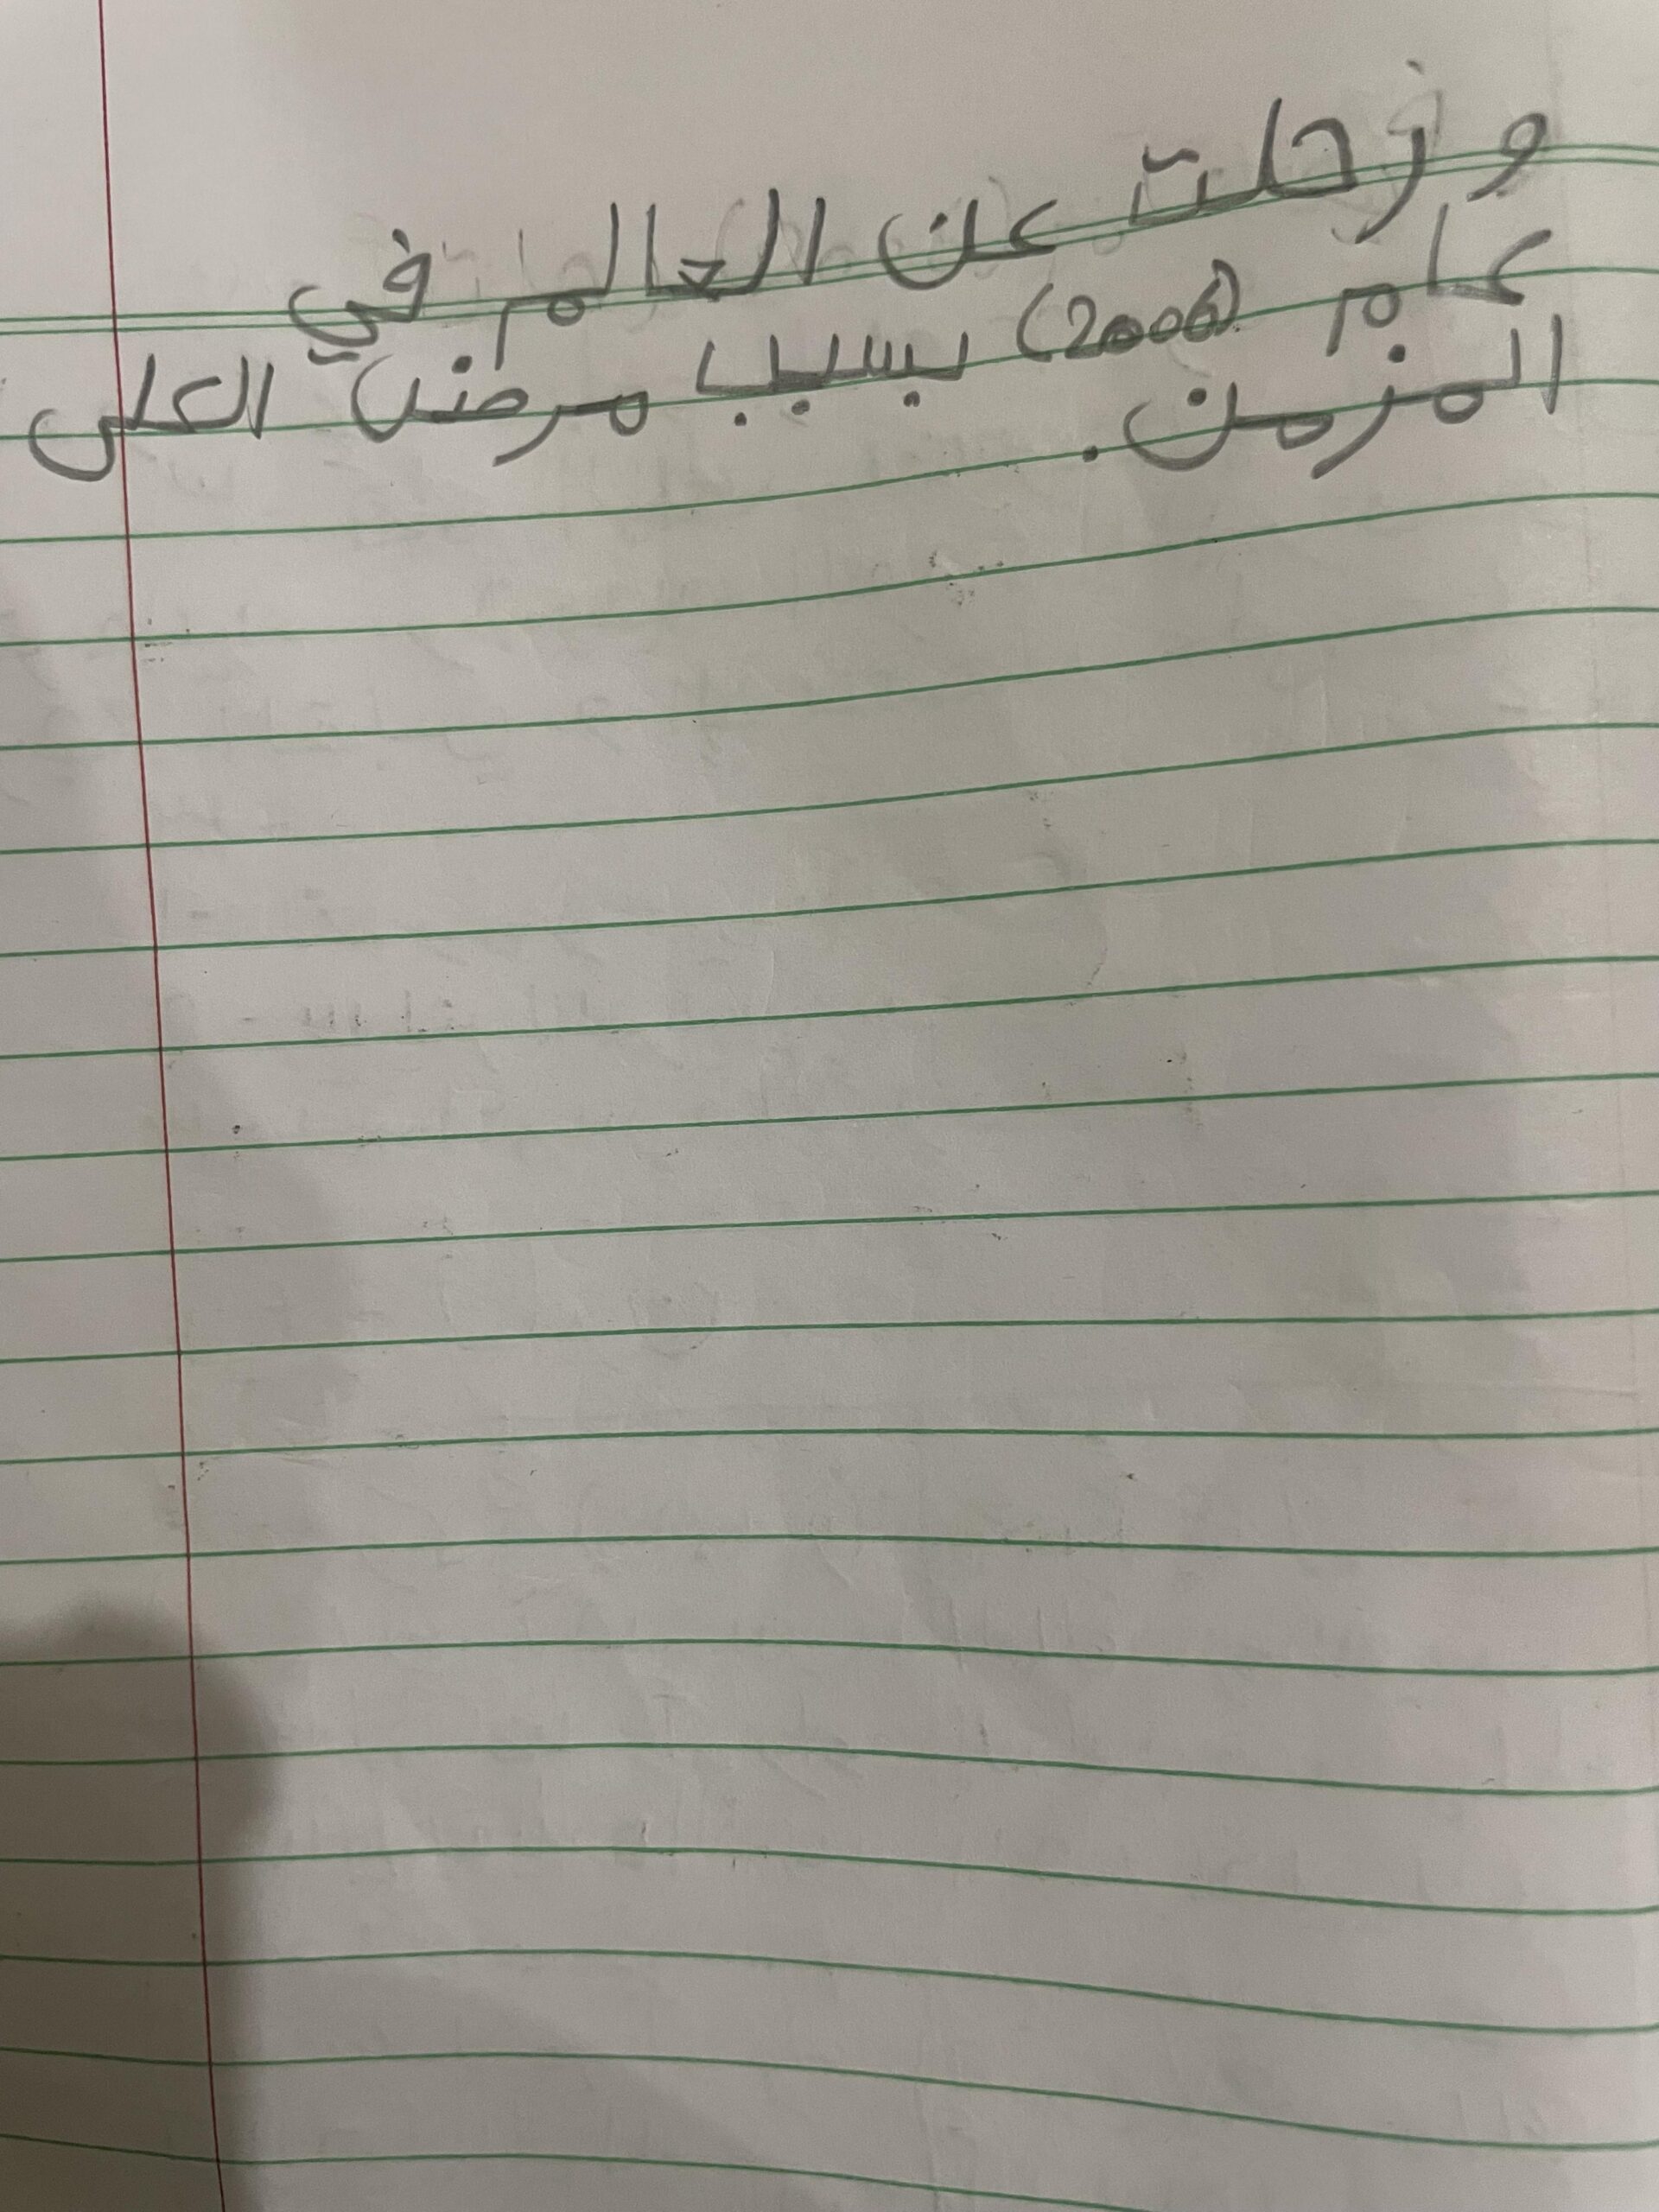 و رحلت عن العالم في
عام (2006) بسبب مرض الكلى
المزمن.